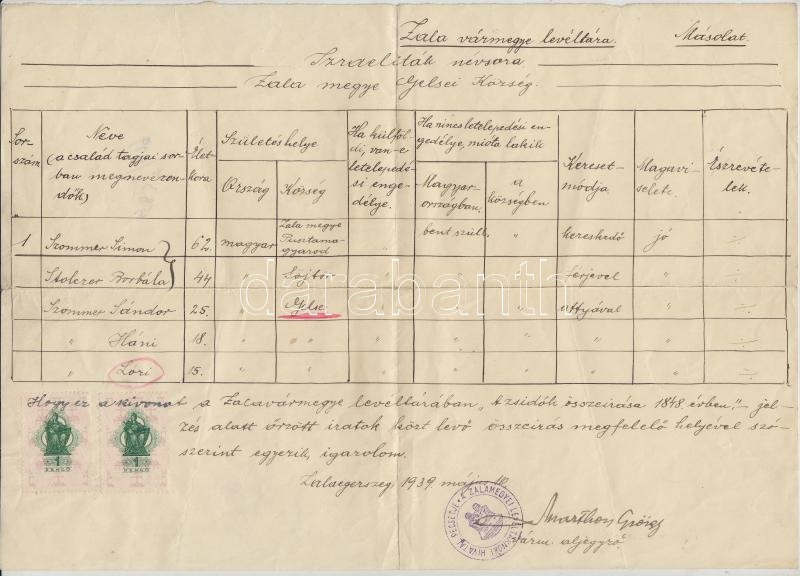 Zala vármegye levéltára. Másolat.
Izraeliták névsora
Zala megye Gelsei Község.
Sor-
szám.
Néve
(a család tagjai sor-
ban megnevezen-
dők)
Élet-
kora
Születés helye
Ország.
Község
Ha külföl-
di, van-e
letelepedé-
si enge-
délye.
Ha nincs letelepedési en-
gedélye, mióta lakik
Magyar-
országban.
a
községben
Kereset-
módja
Magavi-
selete.
Észrevéte-
lek.
1 Szommer Simon 62. magyar Zala megye Pusztama-gyarod " bent szül. " kereskedő jó
Stolczer Borbála 44 " Söjtör " " " férjével " "
Szommer Sándor 25. " Gelse " " " attyával "
" Háni 18. " " " " " " "
" Lori 15. " " " " " " "
Hogy ez a kivonat a Zalavármegye levéltárában „A zsidók összeirása 1848. évben,"- jel-
zés alatt őrzött iratok közt levő összeirás megfelelő helyével szó-
szerint egyezik, igazolom.
Zalaegerszeg, 1939. május
Marthon György
várm. aljegyző
1
PENGŐ
1
PENGŐ
A ZALAMEGYEI LEVÉLTÁRNOKI HIVATAL PECSÉTJE
darabanth